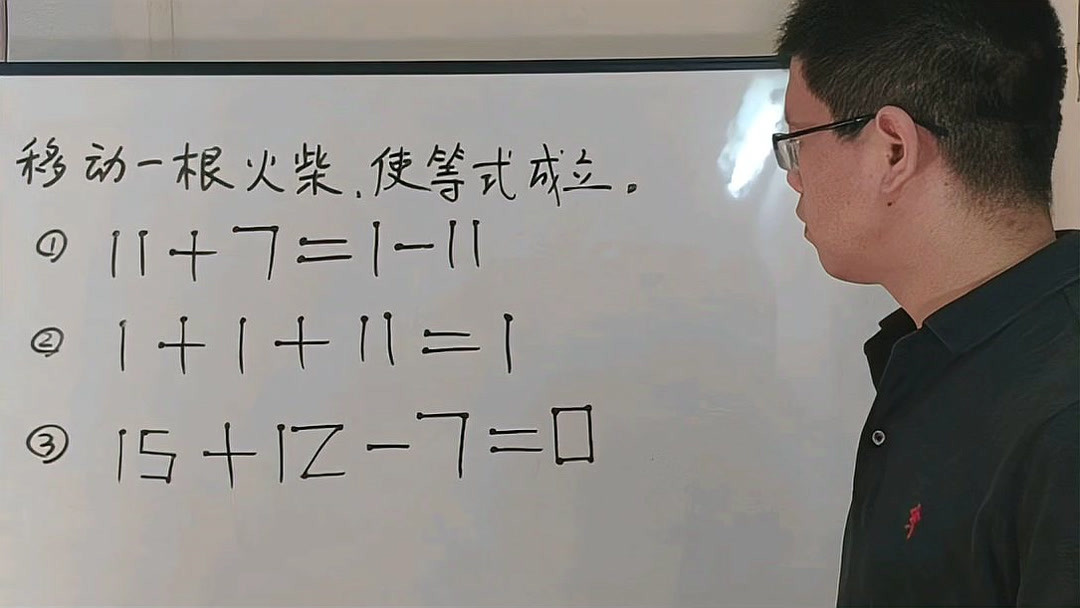 移动一根火柴,使等式成立。
① 11+7=1-11
② 1+1+11=1
③ 15+12-7=0